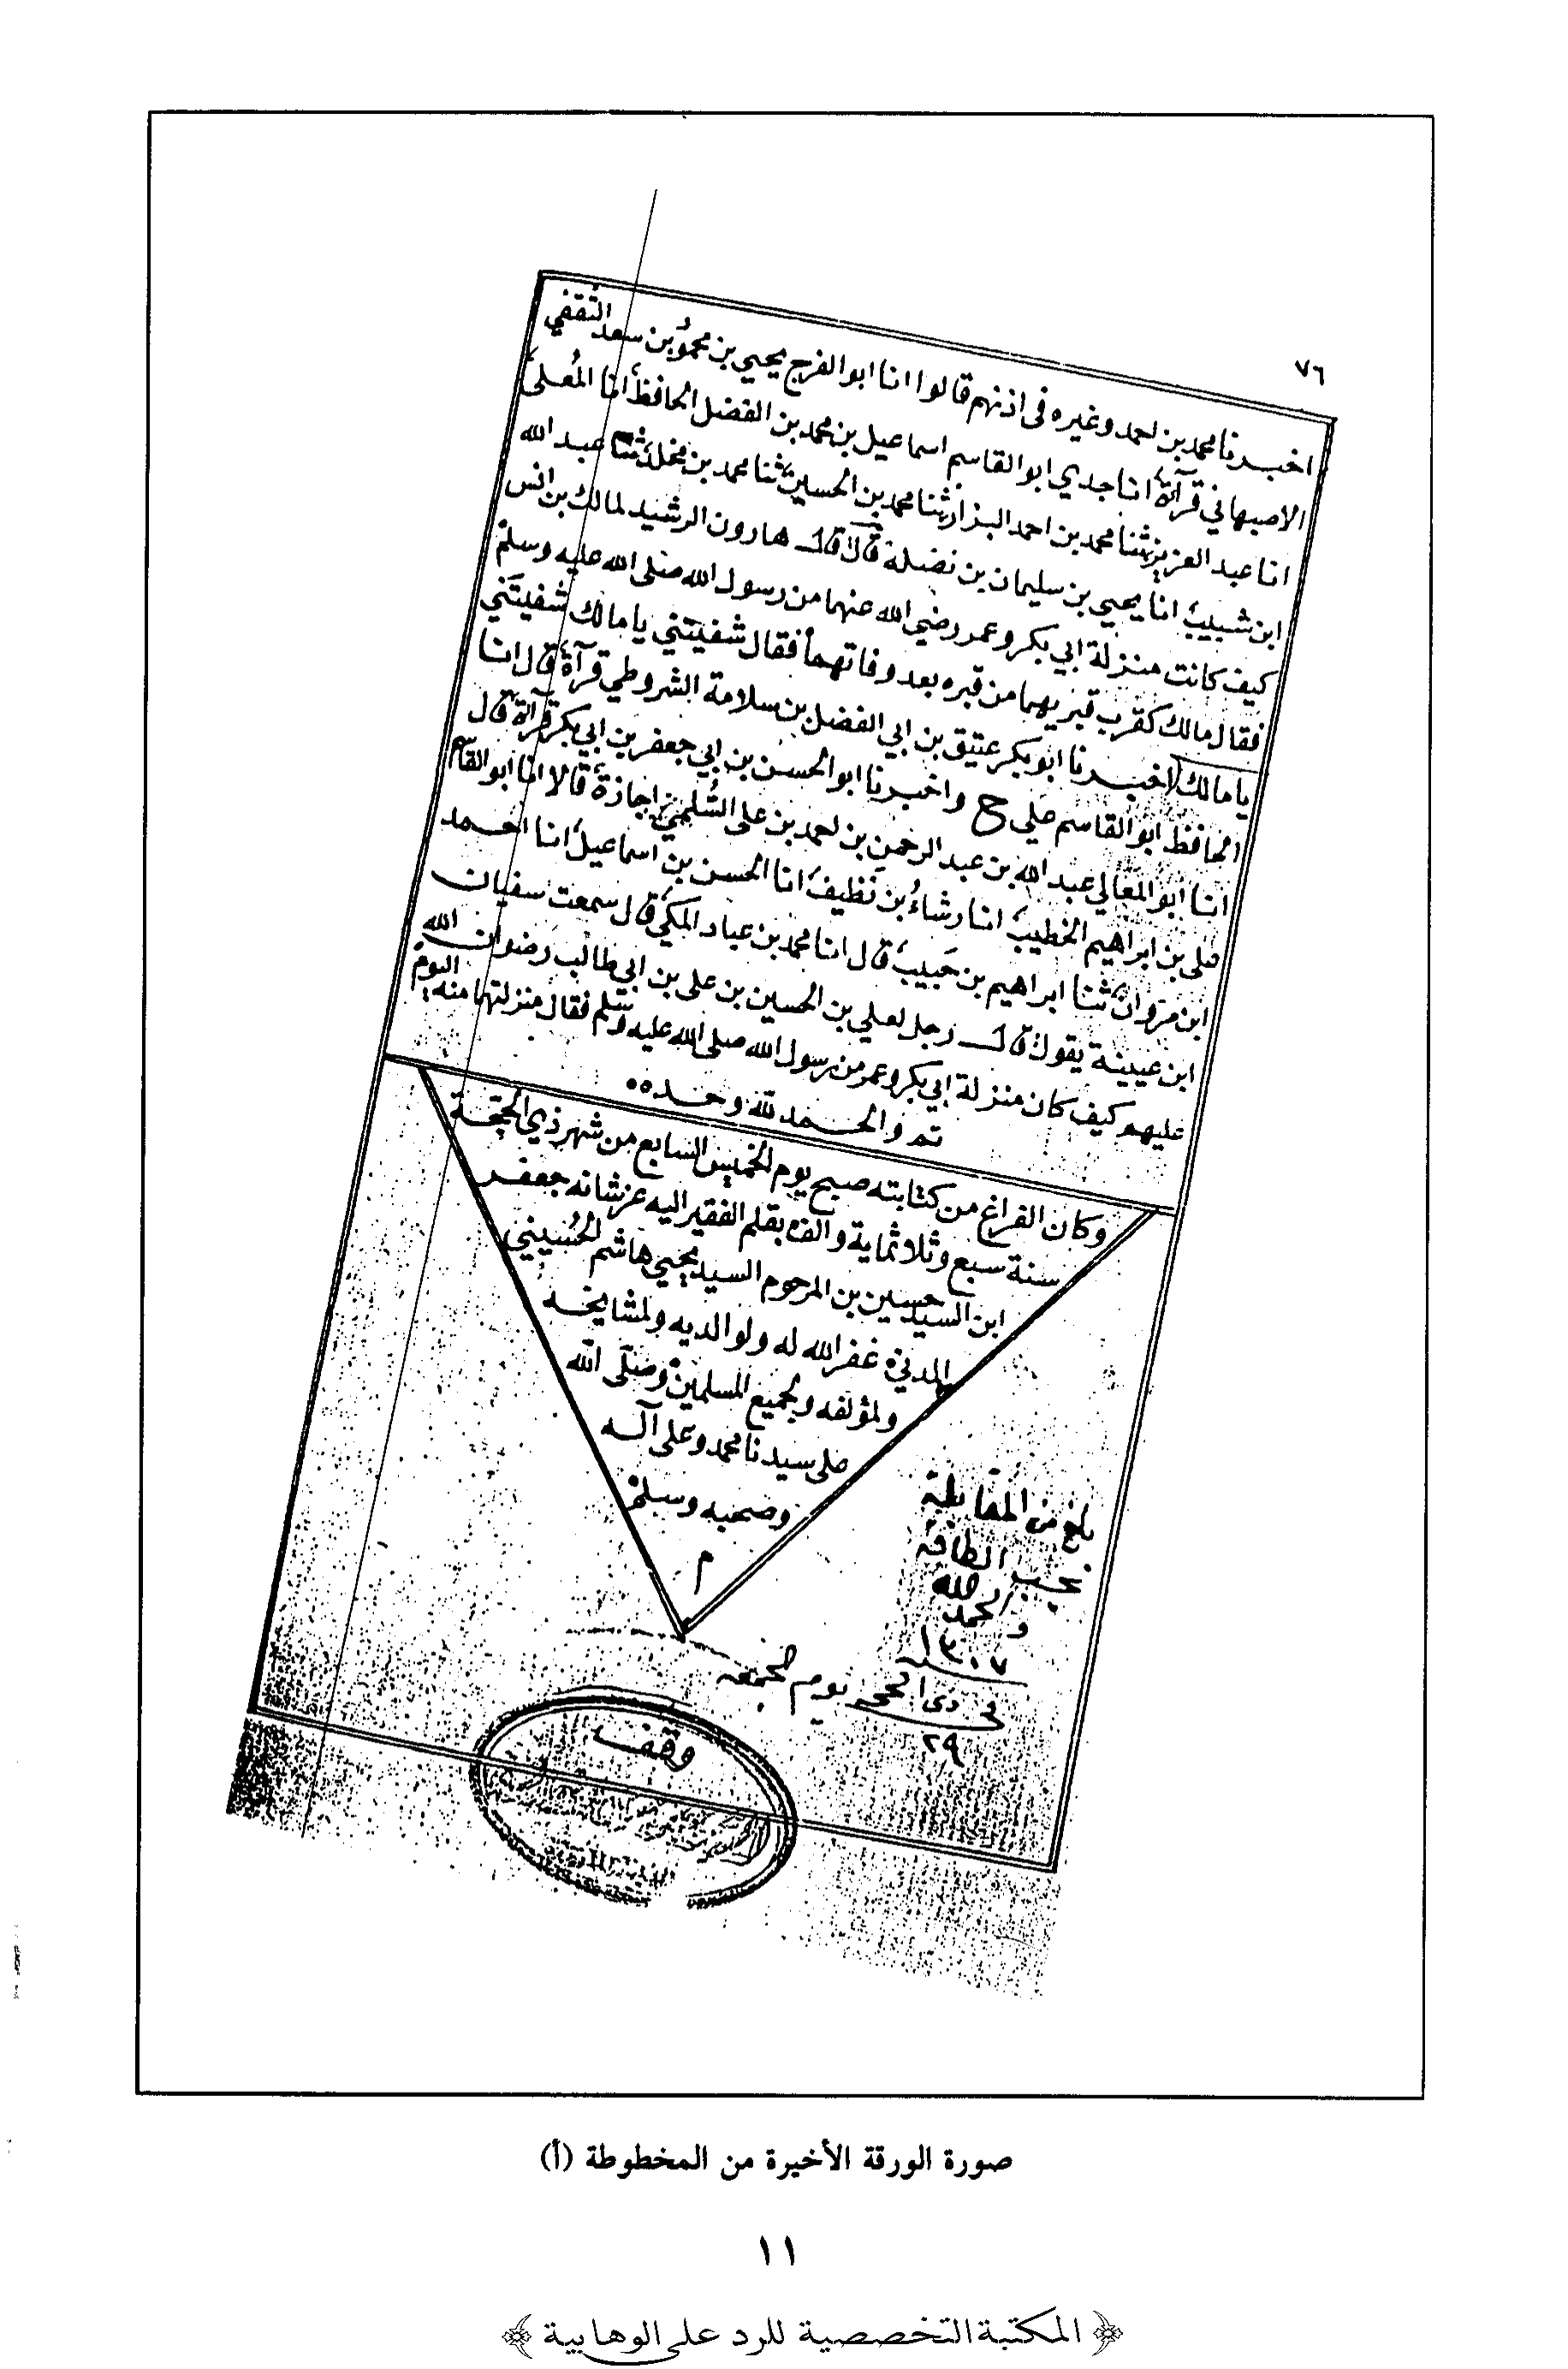 ٧٦
اخبرنا محمد بن احمد وغيره فى اذنهم قالوا انا ابو الفرج يحيي بن محمود بن سعد الثقفي
الاصبهاني قرآة انا جدي ابو القاسم اسماعيل بن محمد بن الفضل الحافظ انا المعلى
انا عبد العزيز ثنا محمد بن احمد البزار ثنا محمد بن الحسين ثنا محمد بن مخلد ثنا عبد الله
ابن شبيب انا يحيي بن سليمان بن نضلة قال قال هارون الرشيد لمالك بن انس
كيف كانت منزلة ابي بكر وعمر رضي الله عنهما من رسول الله صلى الله عليه وسلم
فقال مالك كقرب قبريهما من قبره بعد وفاتهما فقال شفيتني يا مالك شفيتني
يا مالك اخبرنا ابو بكر عتيق بن ابي الفضل بن سلامة الشروطي قرآة قال انا
الحافظ ابو القاسم علي ح واخبرنا ابو الحسن بن ابي جعفر بن ابي بكر قرآة قال
انا ابو المعالي عبد الله بن عبد الرحمن بن احمد بن على السلمي اجازة قالا انا ابو القاسم
على بن ابراهيم الخطيب انا رشاء بن نظيف انا الحسن بن اسماعيل انا احمد
ابن مروان ثنا ابراهيم بن حبيب قال انا محمد بن عباد المكي قال سمعت سفيان
ابن عيينة يقول قال رجل لعلي بن الحسين بن علي بن ابي طالب رضوان الله
عليهم كيف كان منزلة ابي بكر وعمر من رسول الله صلى الله عليه وسلم فقال منزلتهما منه اليوم
تم والحمد لله وحده
وكان الفراغ من كتابته صبح يوم الخميس السابع من شهر ذي الحجة
سنة سبع وثلاثماية والف بقلم الفقير اليه عز شانه جعفر
ابن السيد حسين بن المرحوم السيد يحيي هاشم الحسيني
المدني غفر الله له ولوالديه ولمشايخه
ولمؤلفه ولجميع المسلمين وصلى الله
على سيدنا محمد وعلى آله
وصحبه وسلم
م
بلغ من المقابلة
بحسب الطاقة
والحمد لله
١٣٠٧
في ذي الحجه يوم الجمعه
٢٩
وقف
صورة الورقة الأخيرة من المخطوطة (أ)
١١
المكتبة التخصصية للرد على الوهابية